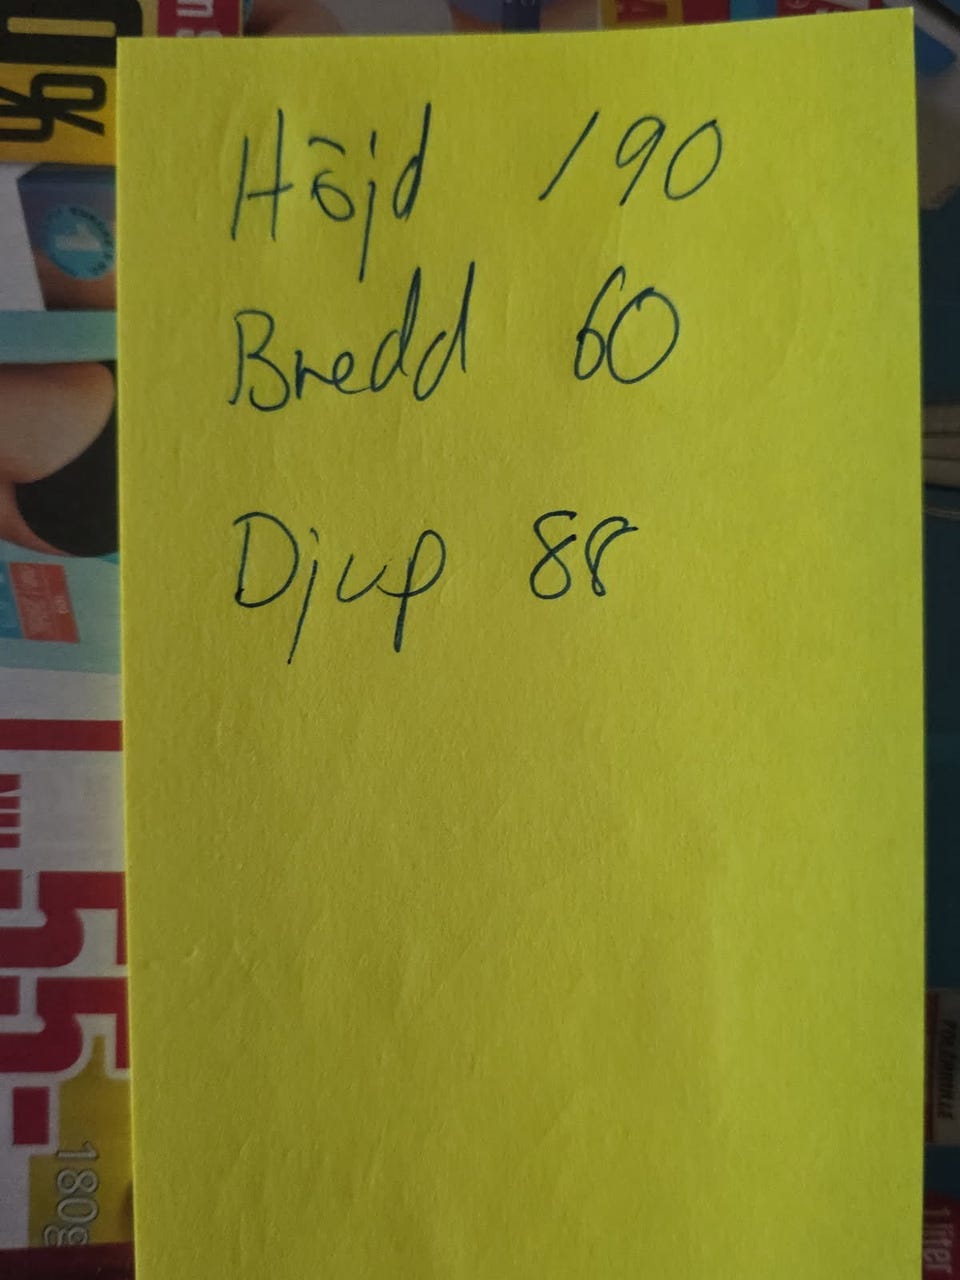 Höjd 190
Bredd 60
Djup 88
55-
180g
1
1 liter